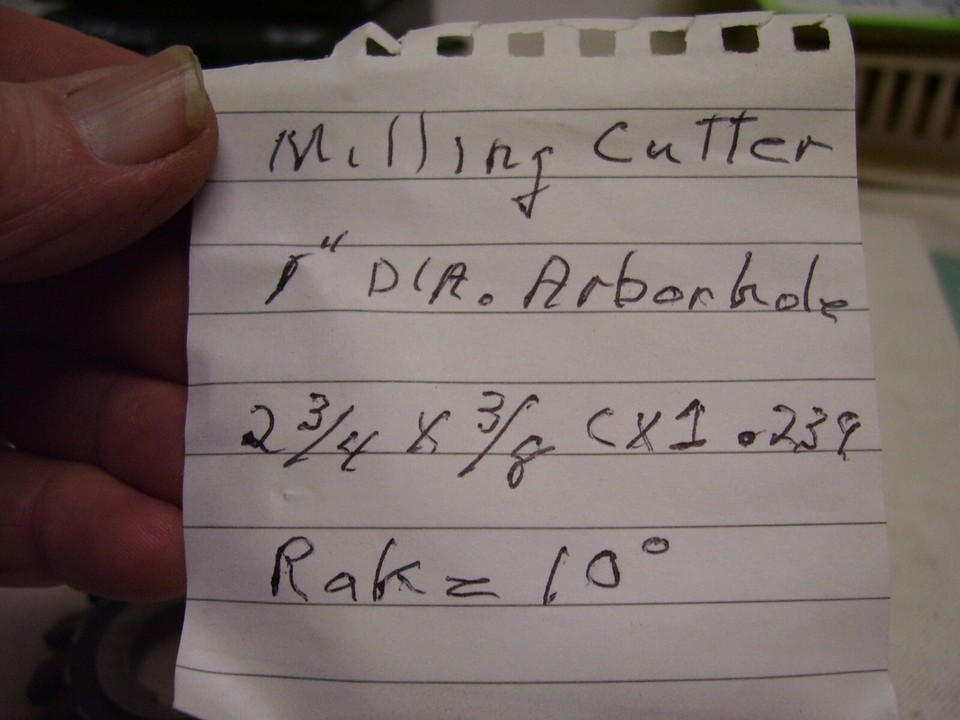 Milling Cutter
1" DIA. Arbor hole
2 3/4 X 3/8 C X 1 .239
Rak = 10°